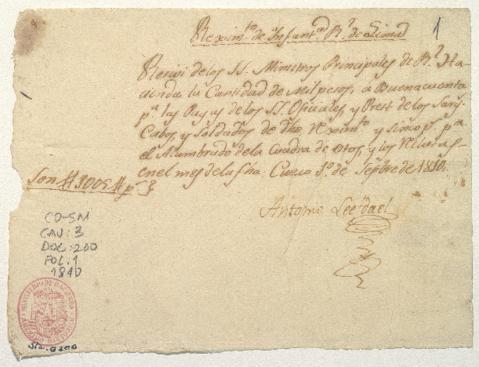 Reximto de Infanta Rl de Lima
1
Reciví de los SS. Ministros Principales de Rl Ha
cienda la Cantidad de mil pesos, a Buena cuenta
pa los de los SS. Oficiales, y Prest de los Sarjs
Cabos, y Soldados de dho Reximto y sinco ps pa
el Alumbrado de la Cuadra de estos, y los
en el mes de la fha. Cuzco 1o de Sepbre de 1810.
Son 1005 ps
Antonio
CO-SM
CAJ: 3
DOC: 200
FOL. 1
1810